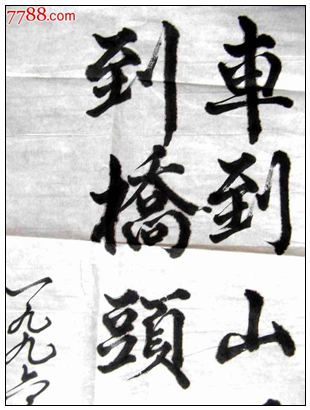 7788.com
車到山
到橋頭
一九九六年